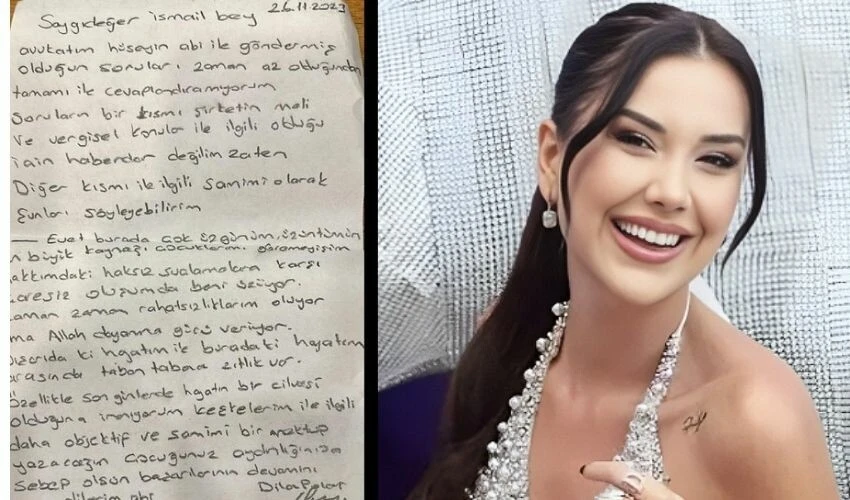 Saygıdeğer ismail bey 26.11.2023
avukatım hüseyin abi ile göndermiş
olduğun soruları zaman az olduğundan
tamamı ile cevaplandıramıyorum
Soruların bir kısmı şirketin mali
Ve vergisel konular ile ilgili olduğu
için haberdar değilim zaten
Diğer kısmı ile ilgili samimi olarak
şunları söyleyebilirim
Evet burada çok üzgünüm, üzüntümün
n büyük kaynağı çocuklarımı göremeyişim
akkımdaki haksız suçlamalara karşı
aresiz oluşumda beni üzüyor
aman zaman rahatsızlıklarım oluyor
ma Allah dayanma gücü veriyor.
ışarıda ki hayatım ile buradaki hayatım
rasında taban tabana zıtlık var.
özellikle son günlerde hayatın bir cilvesi
olduğuna inanıyorum keşkelerim ile ilgili
daha objektif ve samimi bir mektup
yazacağım çocuğunuz aydınlığınıza
Sebep olsun başarılarının devamını
dilerim abi Dila Polat